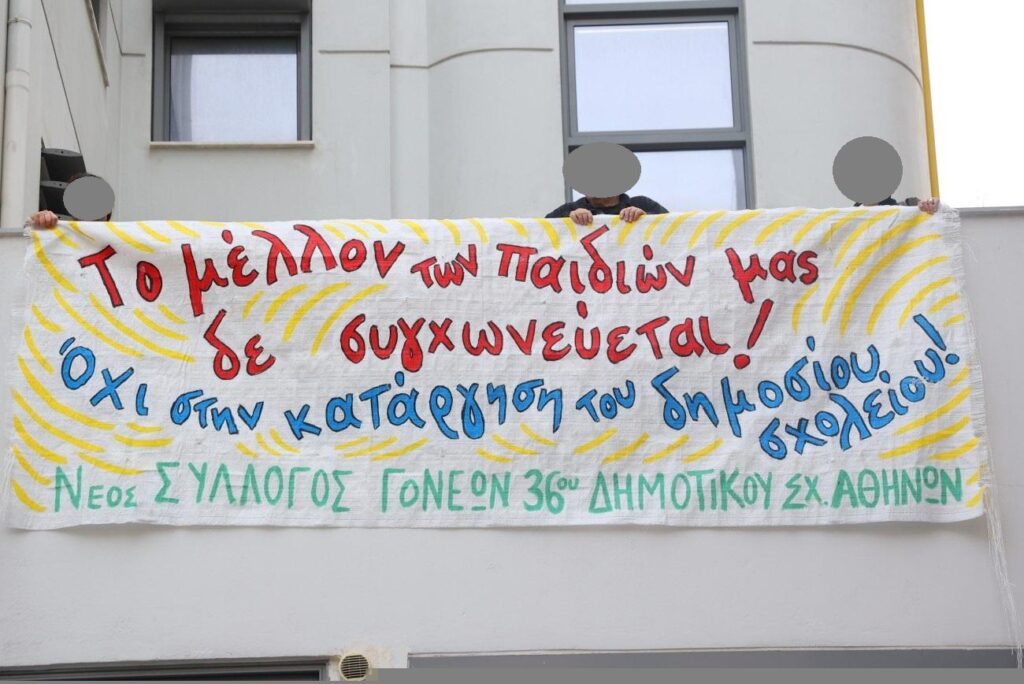 Το μέλλον των παιδιών μας
δε συγχωνεύεται!
Όχι στην κατάργηση του δημοσίου
σχολείου!
Νέος ΣΥΛΛΟΓΟΣ ΓΟΝΕΩΝ 36ου ΔΗΜΟΤΙΚΟΥ ΣΧ. ΑΘΗΝΩΝ